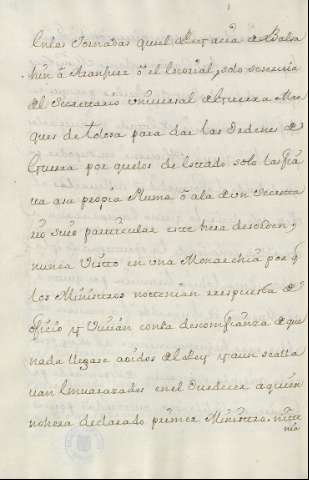 en las Jornadas que el
hin ô Aranjuez ô el escorial, solo se seruia
del Secretario vniuersal de Guerra Mar
ques de tolosa para dar las Ordenes de
Guerra por que los de estado solo las fia
ua a su propia Pluma ô a la de vn Secreta
rio suio particular este hera desorden
nunca Visto en vna Monarchia por q
los Ministros no tenian respuesta de
oficio y Viuian con la desconfianza de que
nada llegase a oidos del Rey y aun se alla
uan embarazados en el obedecer a quien
no hera declarado primer Ministro. ni te
nia